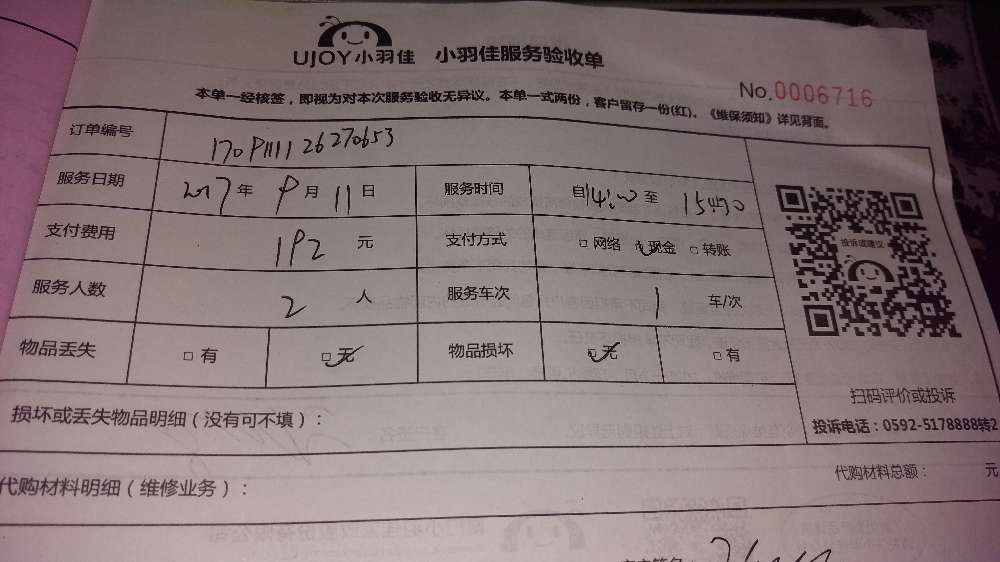 UJOY小羽佳 小羽佳服务验收单
No.0006716
本单一经核签，即视为对本次服务验收无异议。本单一式两份，客户留存一份(红)。《维保须知》详见背面。
订单编号 1709111126270653
服务日期 2017年9月11日 服务时间 自14:00至
支付费用 192元 支付方式 □网络 现金 □转账
服务人数 2人 服务车次 1车/次
物品丢失 □有 □无 物品损坏 □无 □有
投诉或建议
扫码评价或投诉
损坏或丢失物品明细（没有可不填）：
投诉电话：0592-5178888转2
代购材料总额： 元
代购材料明细（维修业务）：